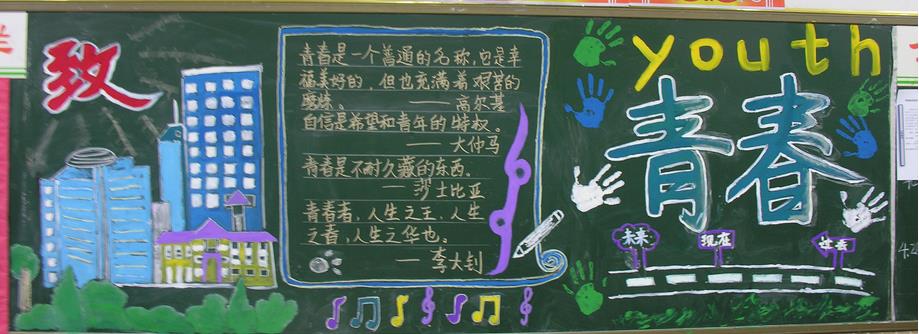 致
青春是一个普通的名称,它是幸
福美好的,但也充满着艰苦的
磨炼。——高尔基
自信是希望和青年的特权。
——大仲马
青春是不耐久藏的东西。
——莎士比亚
青春者,人生之王,人生
之春,人生之华也。
——李大钊
youth
青春
未来
现在
过去